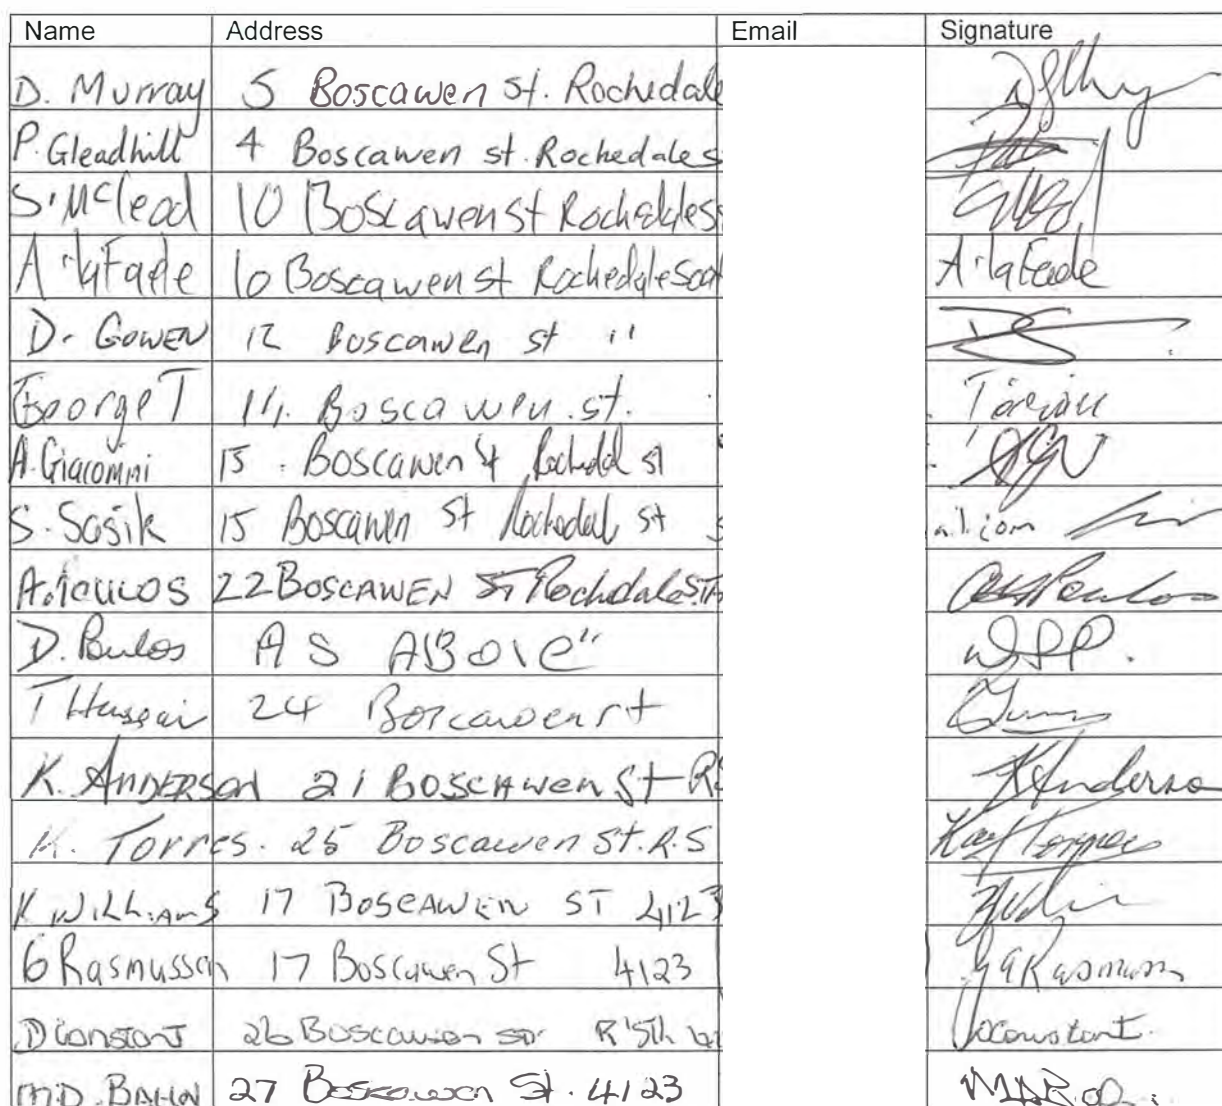 Name Address Email Signature
D. Murray 5 Boscawen St. Rochedale
P. Gleadhill 4 Boscawen st. Rochedale s
S. McLead 10 Boscawen st Rochedale s
A. 10 Boscawen st Rochedale Sout A.
D. Gowen 12 Boscawen st "
George T 14. Boscawen. st.
A. Giacomini 15. Boscawen St Rochedal st
S. Sasik 15 Boscawen St Rochedal st ail.com
A. Poulos 22 BOSCAWEN ST Rochdale STH Poulos
D. Poulos AS ABOVE"
T Hussain 24 Boscawen st
K. ANDERSON 21 BOSCAWEN St RS KAnderso
K. Torres. 25 Boscawen St. R.S Kay Torres
K WILLIAMS 17 BOSCAWEN ST 4123
G Rasmussen 17 Boscawen St 4123 Rasmussen
D Constant 26 Boscawen St R'Sth Constant.
M.D. BAHN 27 Boscawen St. 4123